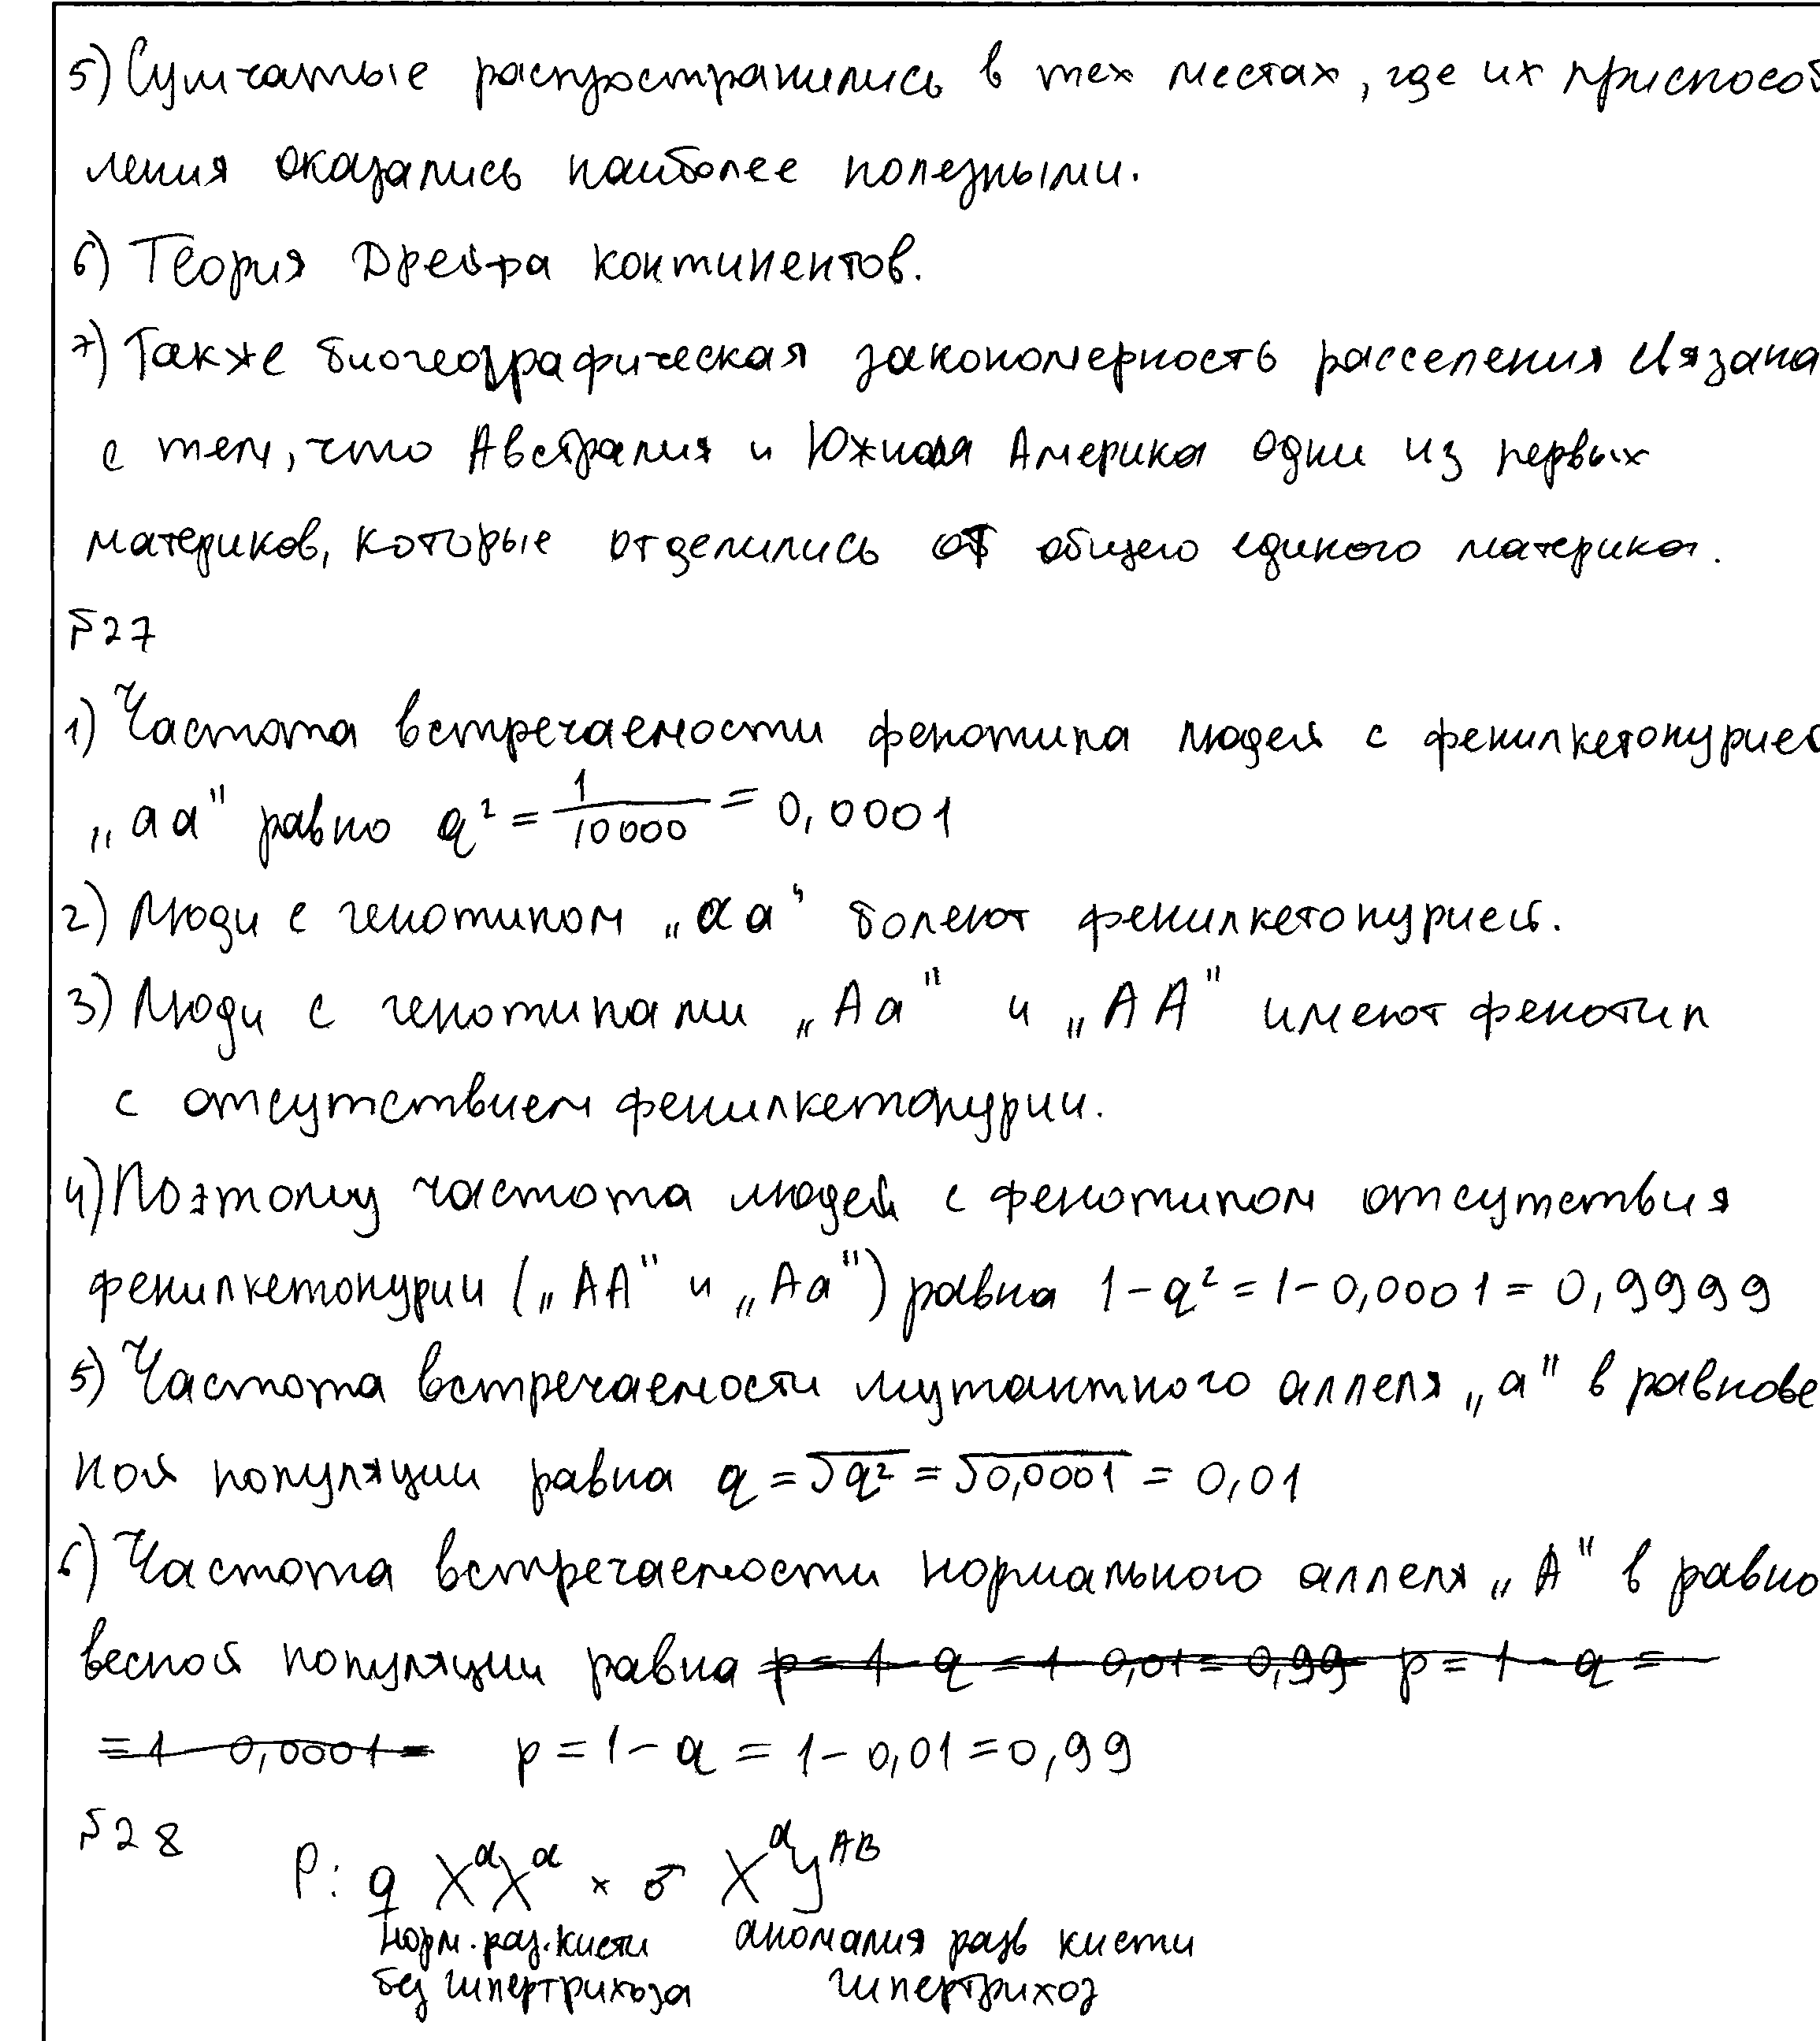 5) Сумчатые распространились в тех местах, где их приспособ
ления оказались наиболее полезными.
6) Теория Дрейфа континентов.
7) Также биогеографическая закономерность расселения связана
с тем, что Австралия и Южная Америка одни из первых
материков, которые отделились от общего единого материка.
№27
1) Частота встречаемости фенотипа людей с фенилкетонурией
„аа" равно q² = 1/10000 = 0,0001
2) Люди с генотипом „аа" болеют фенилкетонурией.
3) Люди с генотипами „Аа" и „АА" имеют фенотип
с отсутствием фенилкетонурии.
4) Поэтому частота людей с фенотипом отсутствия
фенилкетонурии („АА" и „Аа") равна 1-q² = 1-0,0001 = 0,9999
5) Частота встречаемости мутантного аллеля „а" в равнове
ной популяции равна q = √q² = √0,0001 = 0,01
6) Частота встречаемости нормального аллеля „А" в равно
весной популяции равна p = 1 - q = 1 - 0,01 = 0,99 p = 1 - q =
= 1 - 0,0001 = p = 1 - q = 1 - 0,01 = 0,99
№28
P: ♀ XᵃXᵃ × ♂ XᵃYᴬᴮ
норм. раз. кисти аномалия разв кисти
без гипертрихоза гипертрихоз